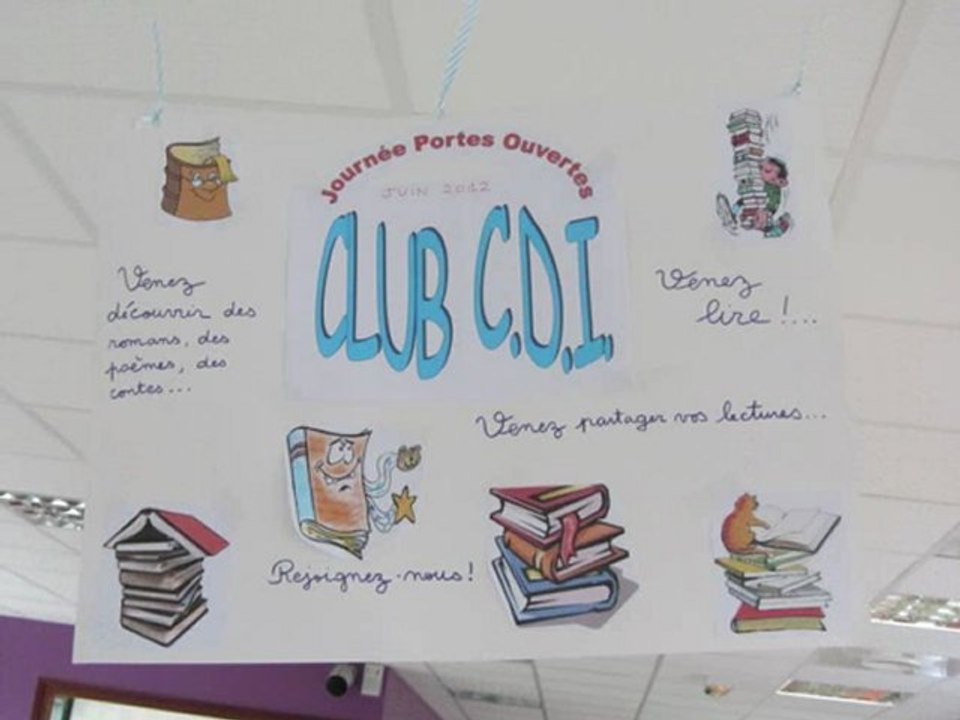 Journée Portes Ouvertes
JUIN 2012
CLUB C.D.I.
Venez
découvrir des
romans, des
poèmes, des
contes...
Venez
lire !...
Venez partager vos lectures...
Rejoignez-nous!